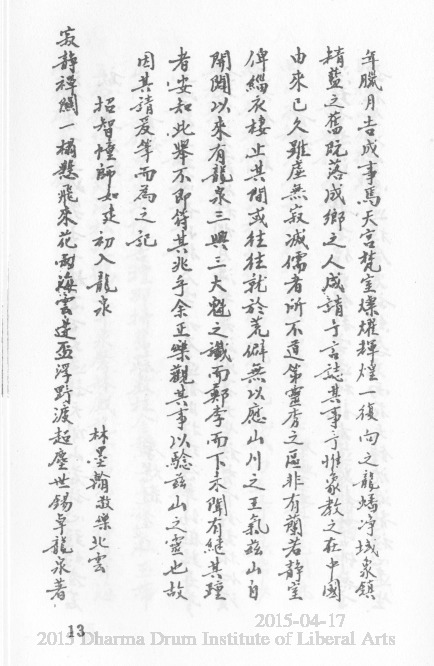 年臘月告成事焉天宮梵室燦燿輝煌一復向之龍蟠淨域泉鎮
精藍之舊既落成鄉之人咸請予言誌其事予惟象教之在中國
由來已久雖虛無寂滅儒者所不道第靈秀之區非有蘭若靜室
俾緇衣棲止其間或往往就於荒僻無以應山川之王氣茲山自
開闢以來有龍泉三興三大魁之讖而鄭李而下未聞有繼其踵
者安知此舉不即符其兆乎余正樂觀其事以驗茲山之靈也故
因其請爰筆而為之記
招智幢師如建初入龍泉
林墨翰敬樂北雲
寂靜禪關一榻懸飛來花雨海雲邊盃浮野渡超塵世錫卓龍泉著
13
2015-04-17
2015 Dharma Drum Institute of Liberal Arts